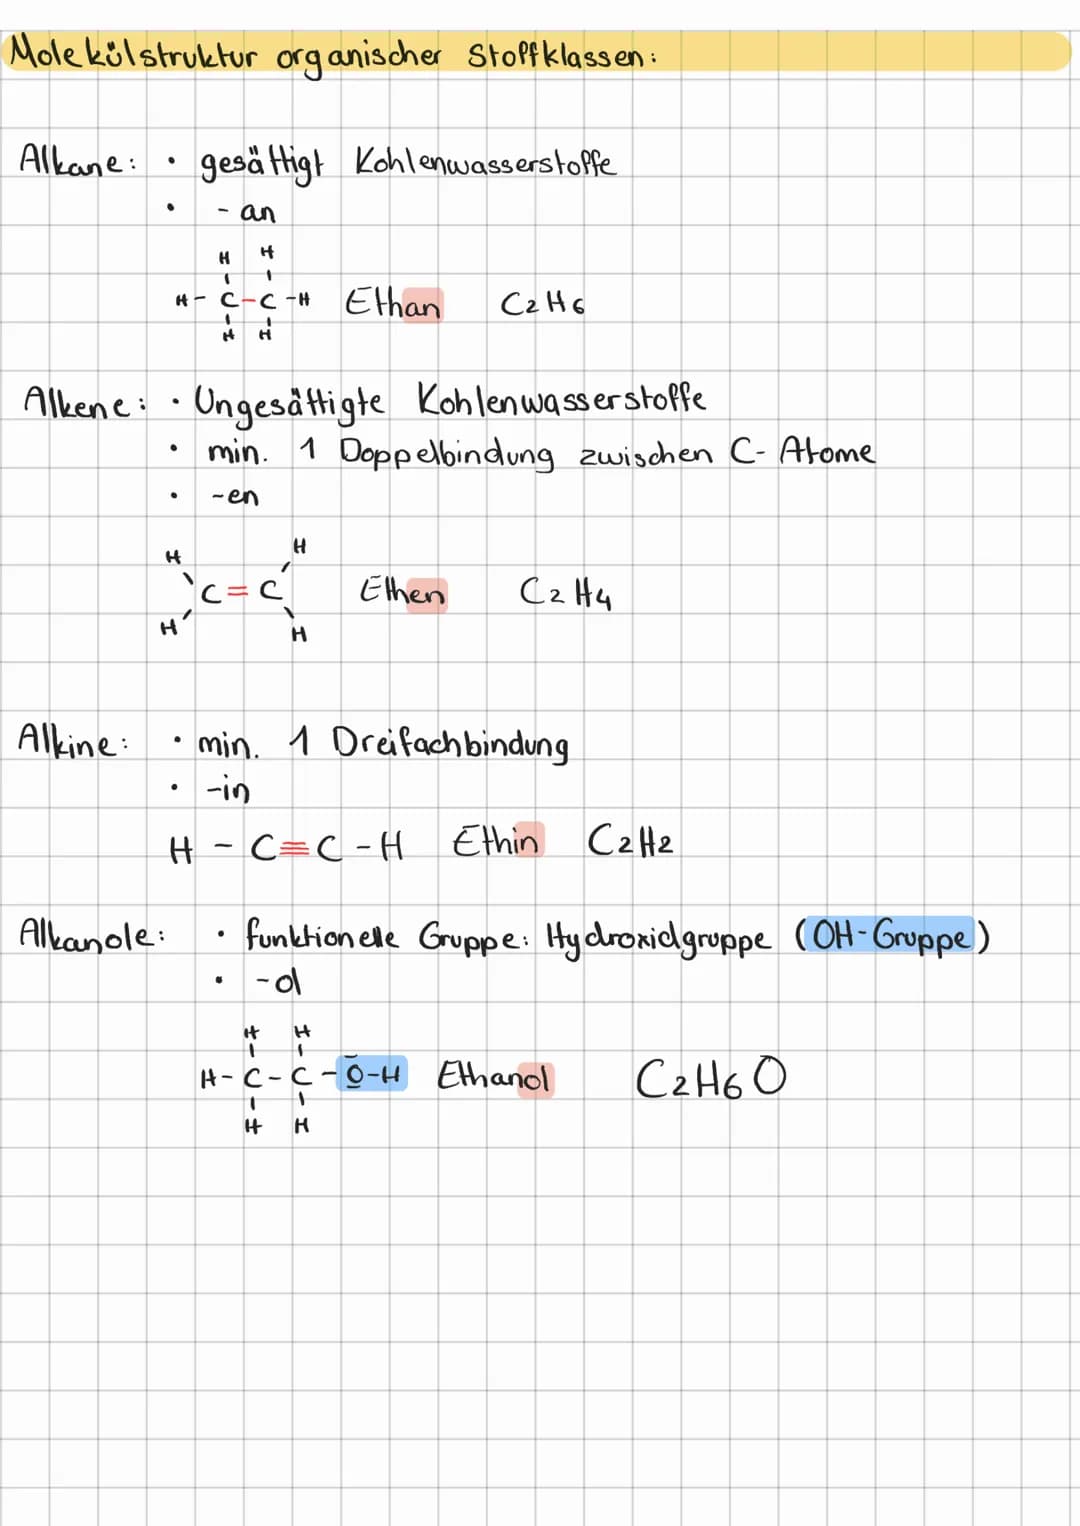 Molekülstruktur organischer Stoffklassen:
Alkane: • gesättigt Kohlenwasserstoffe
• - an
H H
H - C - C - H Ethan C2H6
H H
Alkene: • Ungesättigte Kohlenwasserstoffe
• min. 1 Doppelbindung zwischen C- Atome
• -en
H H
C = C Ethen C2H4
H H
Alkine: • min. 1 Dreifachbindung
• -in
H - C≡C - H Ethin C2H2
Alkanole: • funktionelle Gruppe: Hydroxidgruppe (OH-Gruppe)
• -ol
H H
H - C - C - O - H Ethanol C2H6O
H H